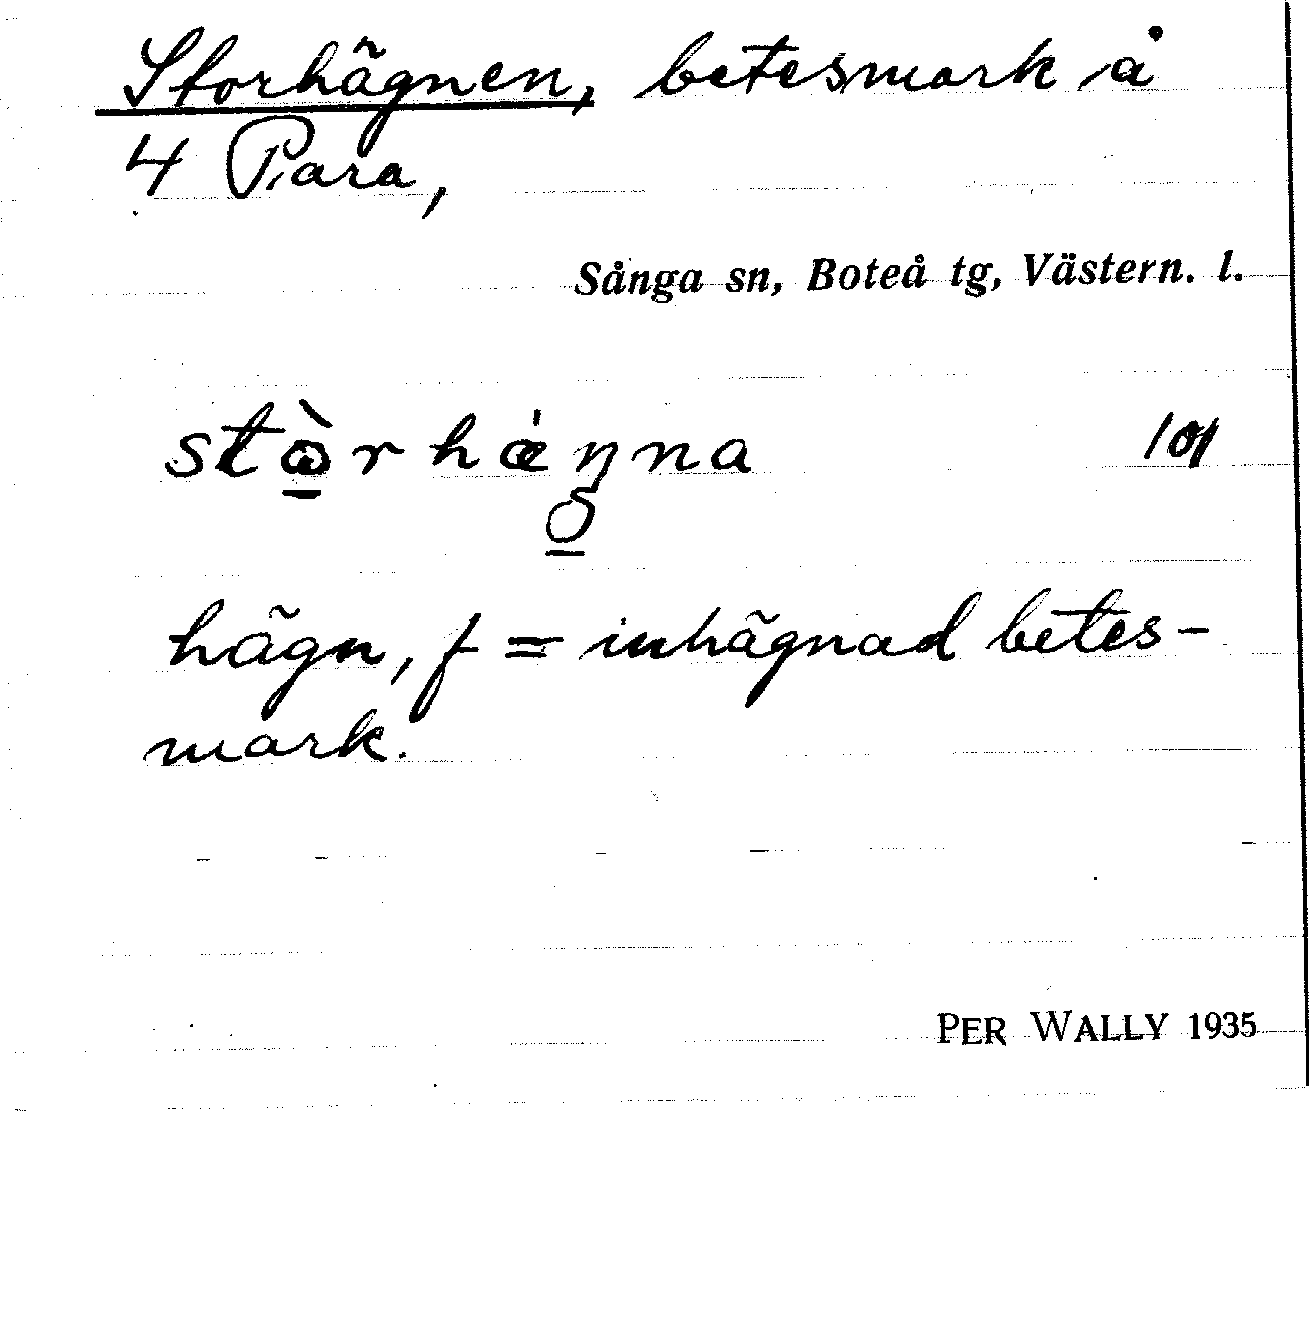 Storhägnen, betesmark å
4 Para,
Sånga sn, Boteå tg, Västern. l.
hägn, f = inhägnad betes-
mark.
PER WALLY 1935